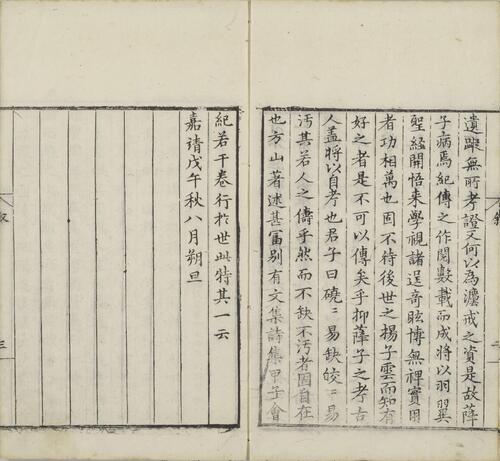 遺蹤無所考證又何以為灋戒之資是故薛
子病焉紀傳之作閱數載而成將以羽翼
聖經開悟来學視諸逞奇眩博無裨實用
者功相萬也固不待後世之楊子雲而知有
好之者是不可以傳矣乎抑薛子之考古
人盖將以自考也君子曰磽〻易缺皎〻易
汚其若人之儔乎然而不缺不汚者固自在
也方山著述甚富别有文集詩集甲子會
紀若干卷行於世此特其一云
嘉靖戊午秋八月朔旦
三